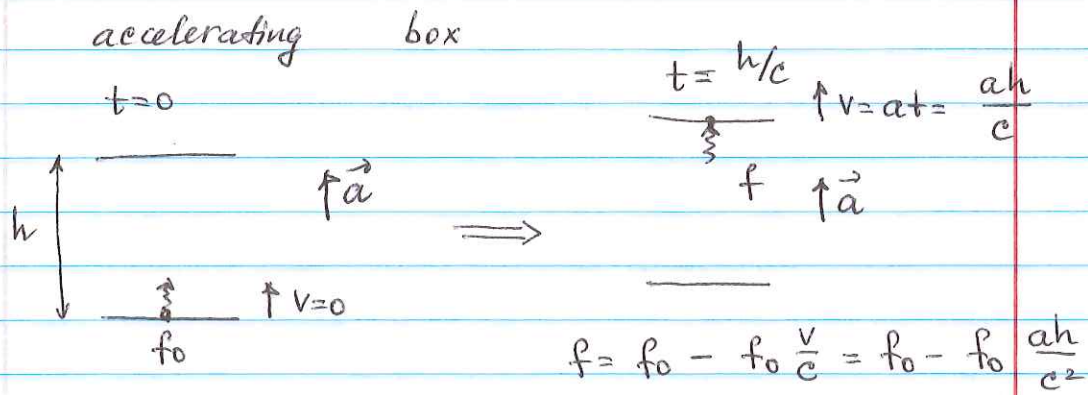 accelerating box
t=0
h
↑a⃗
↑ v=0
f₀
⟹
t= h/c
↑ v=at= ah/c
f
↑a⃗
f= f₀ - f₀ v/c = f₀ - f₀ ah/c²